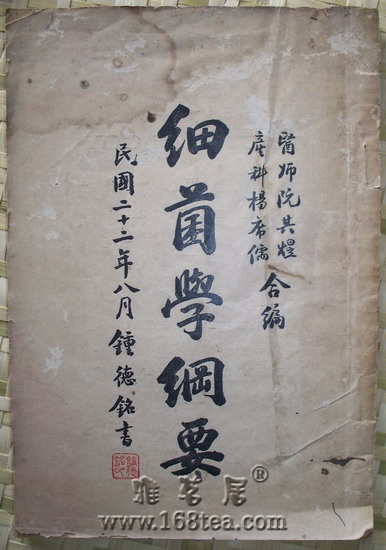 醫師阮其煜
產科楊席儒
合編
細菌學綱要
民國二十二年八月鍾德銘書
雅茗居®
www.168tea.com